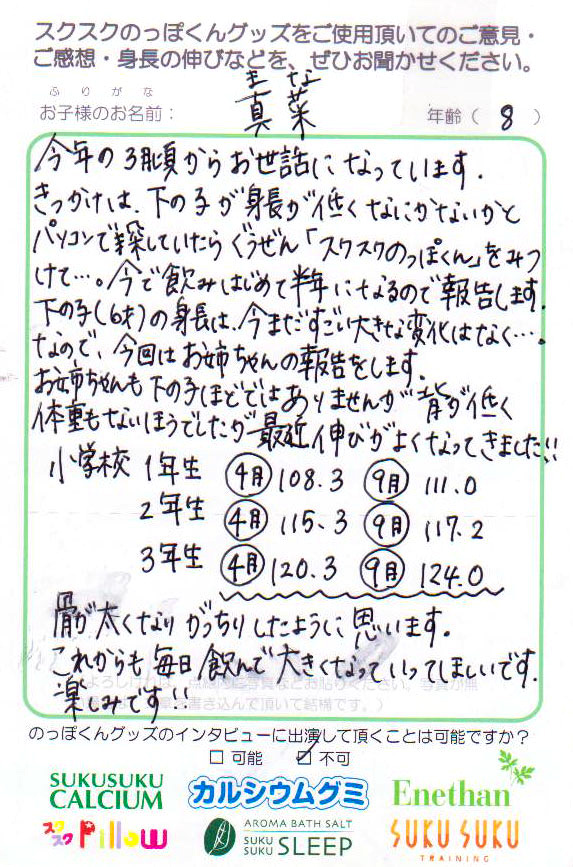 スクスクのっぽくんグッズをご使用頂いてのご意見・
ご感想・身長の伸びなどを、ぜひお聞かせください。
ふりがな まな
お子様のお名前： 真菜 年齢（ 8 ）
今年の3月頃からお世話になっています。
きっかけは、下の子が身長が低くなにかないかと
パソコンで探していたらぐうぜん「スクスクのっぽくん」をみつ
けて…。今で飲みはじめて半年になるので報告します。
下の子(6才)の身長は、今まだすごい大きな変化はなく…。
なので、今回はお姉ちゃんの報告をします。
お姉ちゃんも下の子ほどではありませんが背が低く
体重もないほうでしたが最近伸びがよくなってきました!!
小学校 1年生 4月 108.3 9月 111.0
2年生 4月 115.3 9月 117.2
3年生 4月 120.3 9月 124.0
骨が太くなりがっちりしたように思います。
これからも毎日飲んで大きくなっていってほしいです。
楽しみです!!
のっぽくんグッズのインタビューに出演して頂くことは可能ですか？
□ 可能 ☑ 不可
SUKUSUKU CALCIUM
カルシウムグミ
Enethan
スクスク Pillow
AROMA BATH SALT
SUKU SUKU SLEEP
SUKU SUKU
TRAINING